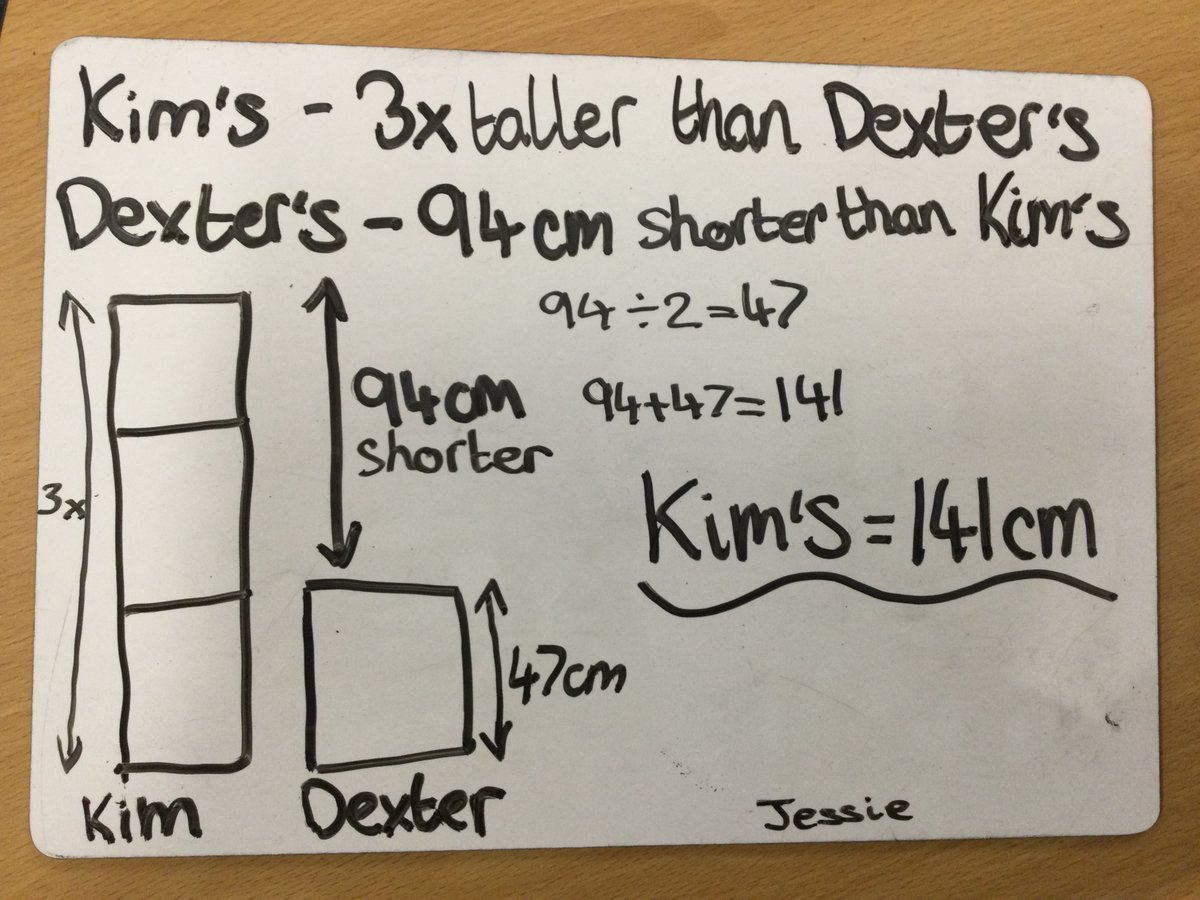 Kim's - 3x taller than Dexter's
Dexter's - 94cm shorter than Kim's
94÷2=47
94cm
shorter
94+47=141
3x
Kim's = 141cm
47cm
Kim
Dexter
Jessie